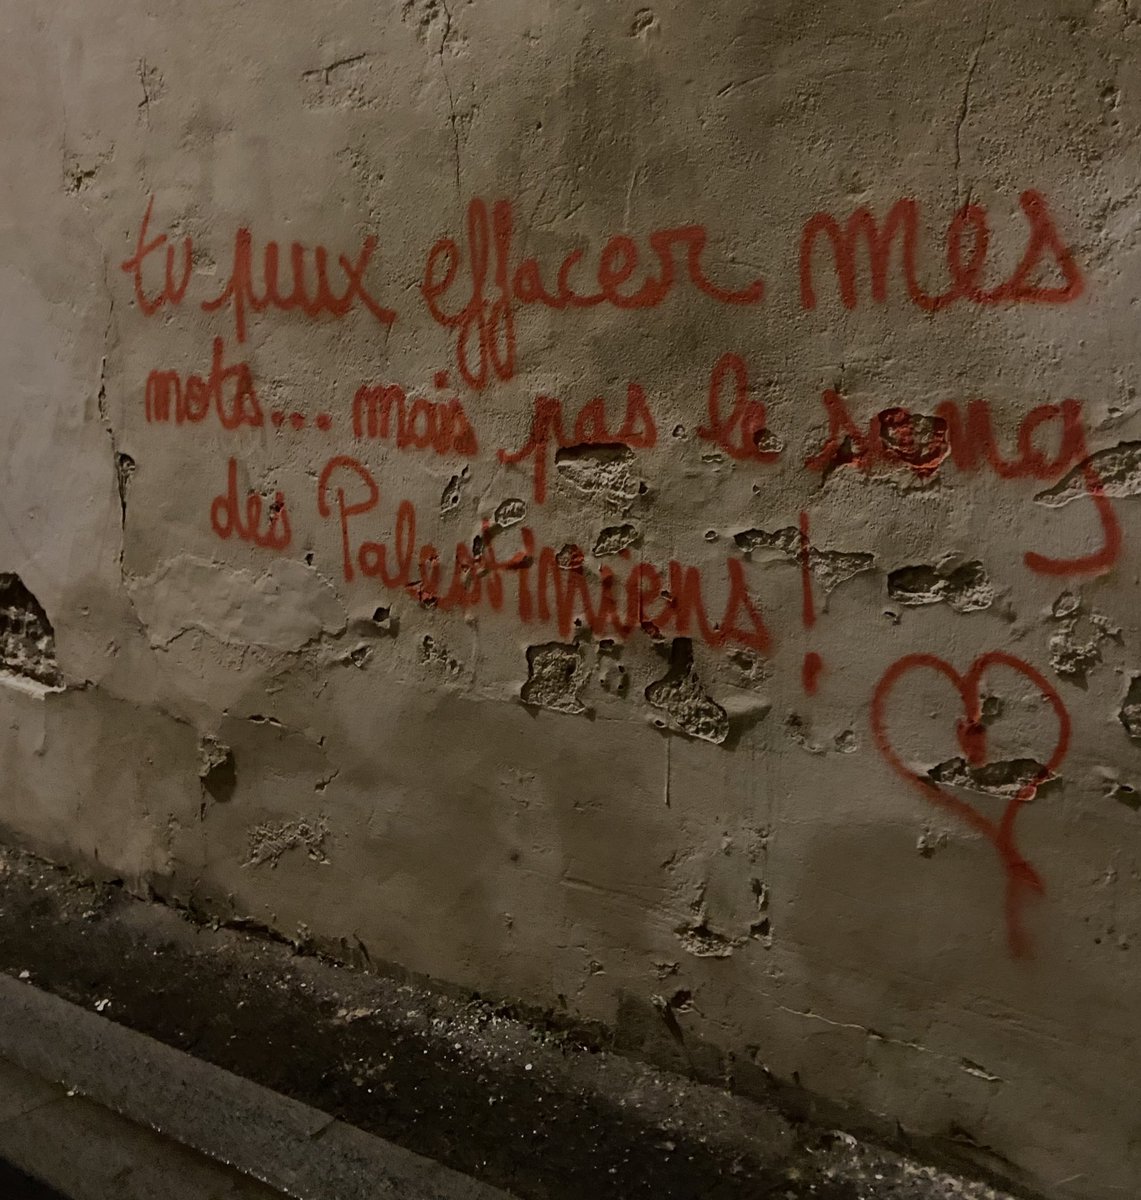 tu peux effacer mes
mots... mais pas le sang
des Palestiniens !